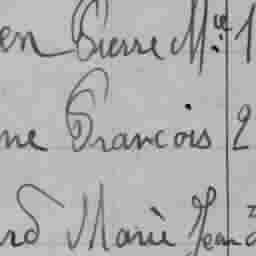 en Pierre Mie 1
ne François 2
rd Marie Jean